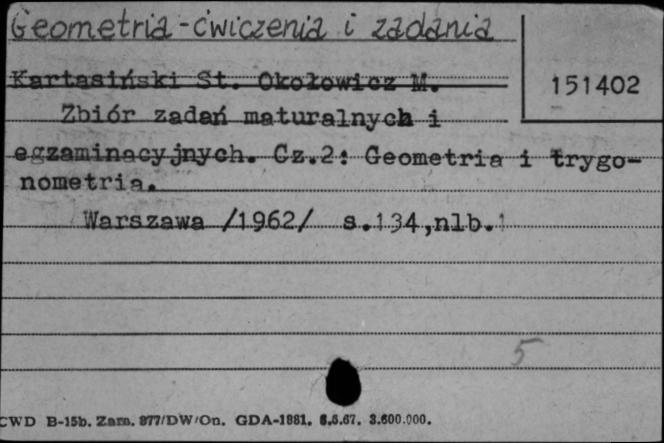 Geometria - ćwiczenia i zadania
Kartasiński St. Okołowicz M.
151402
Zbiór zadań maturalnych i
egzaminacyjnych. Cz.2: Geometria i trygo-
nometria.
Warszawa /1962/ s.134,nlb.1
5
CWD B-15b. Zam. 877/DW/On. GDA-1881. 6.6.67. 3.600.000.